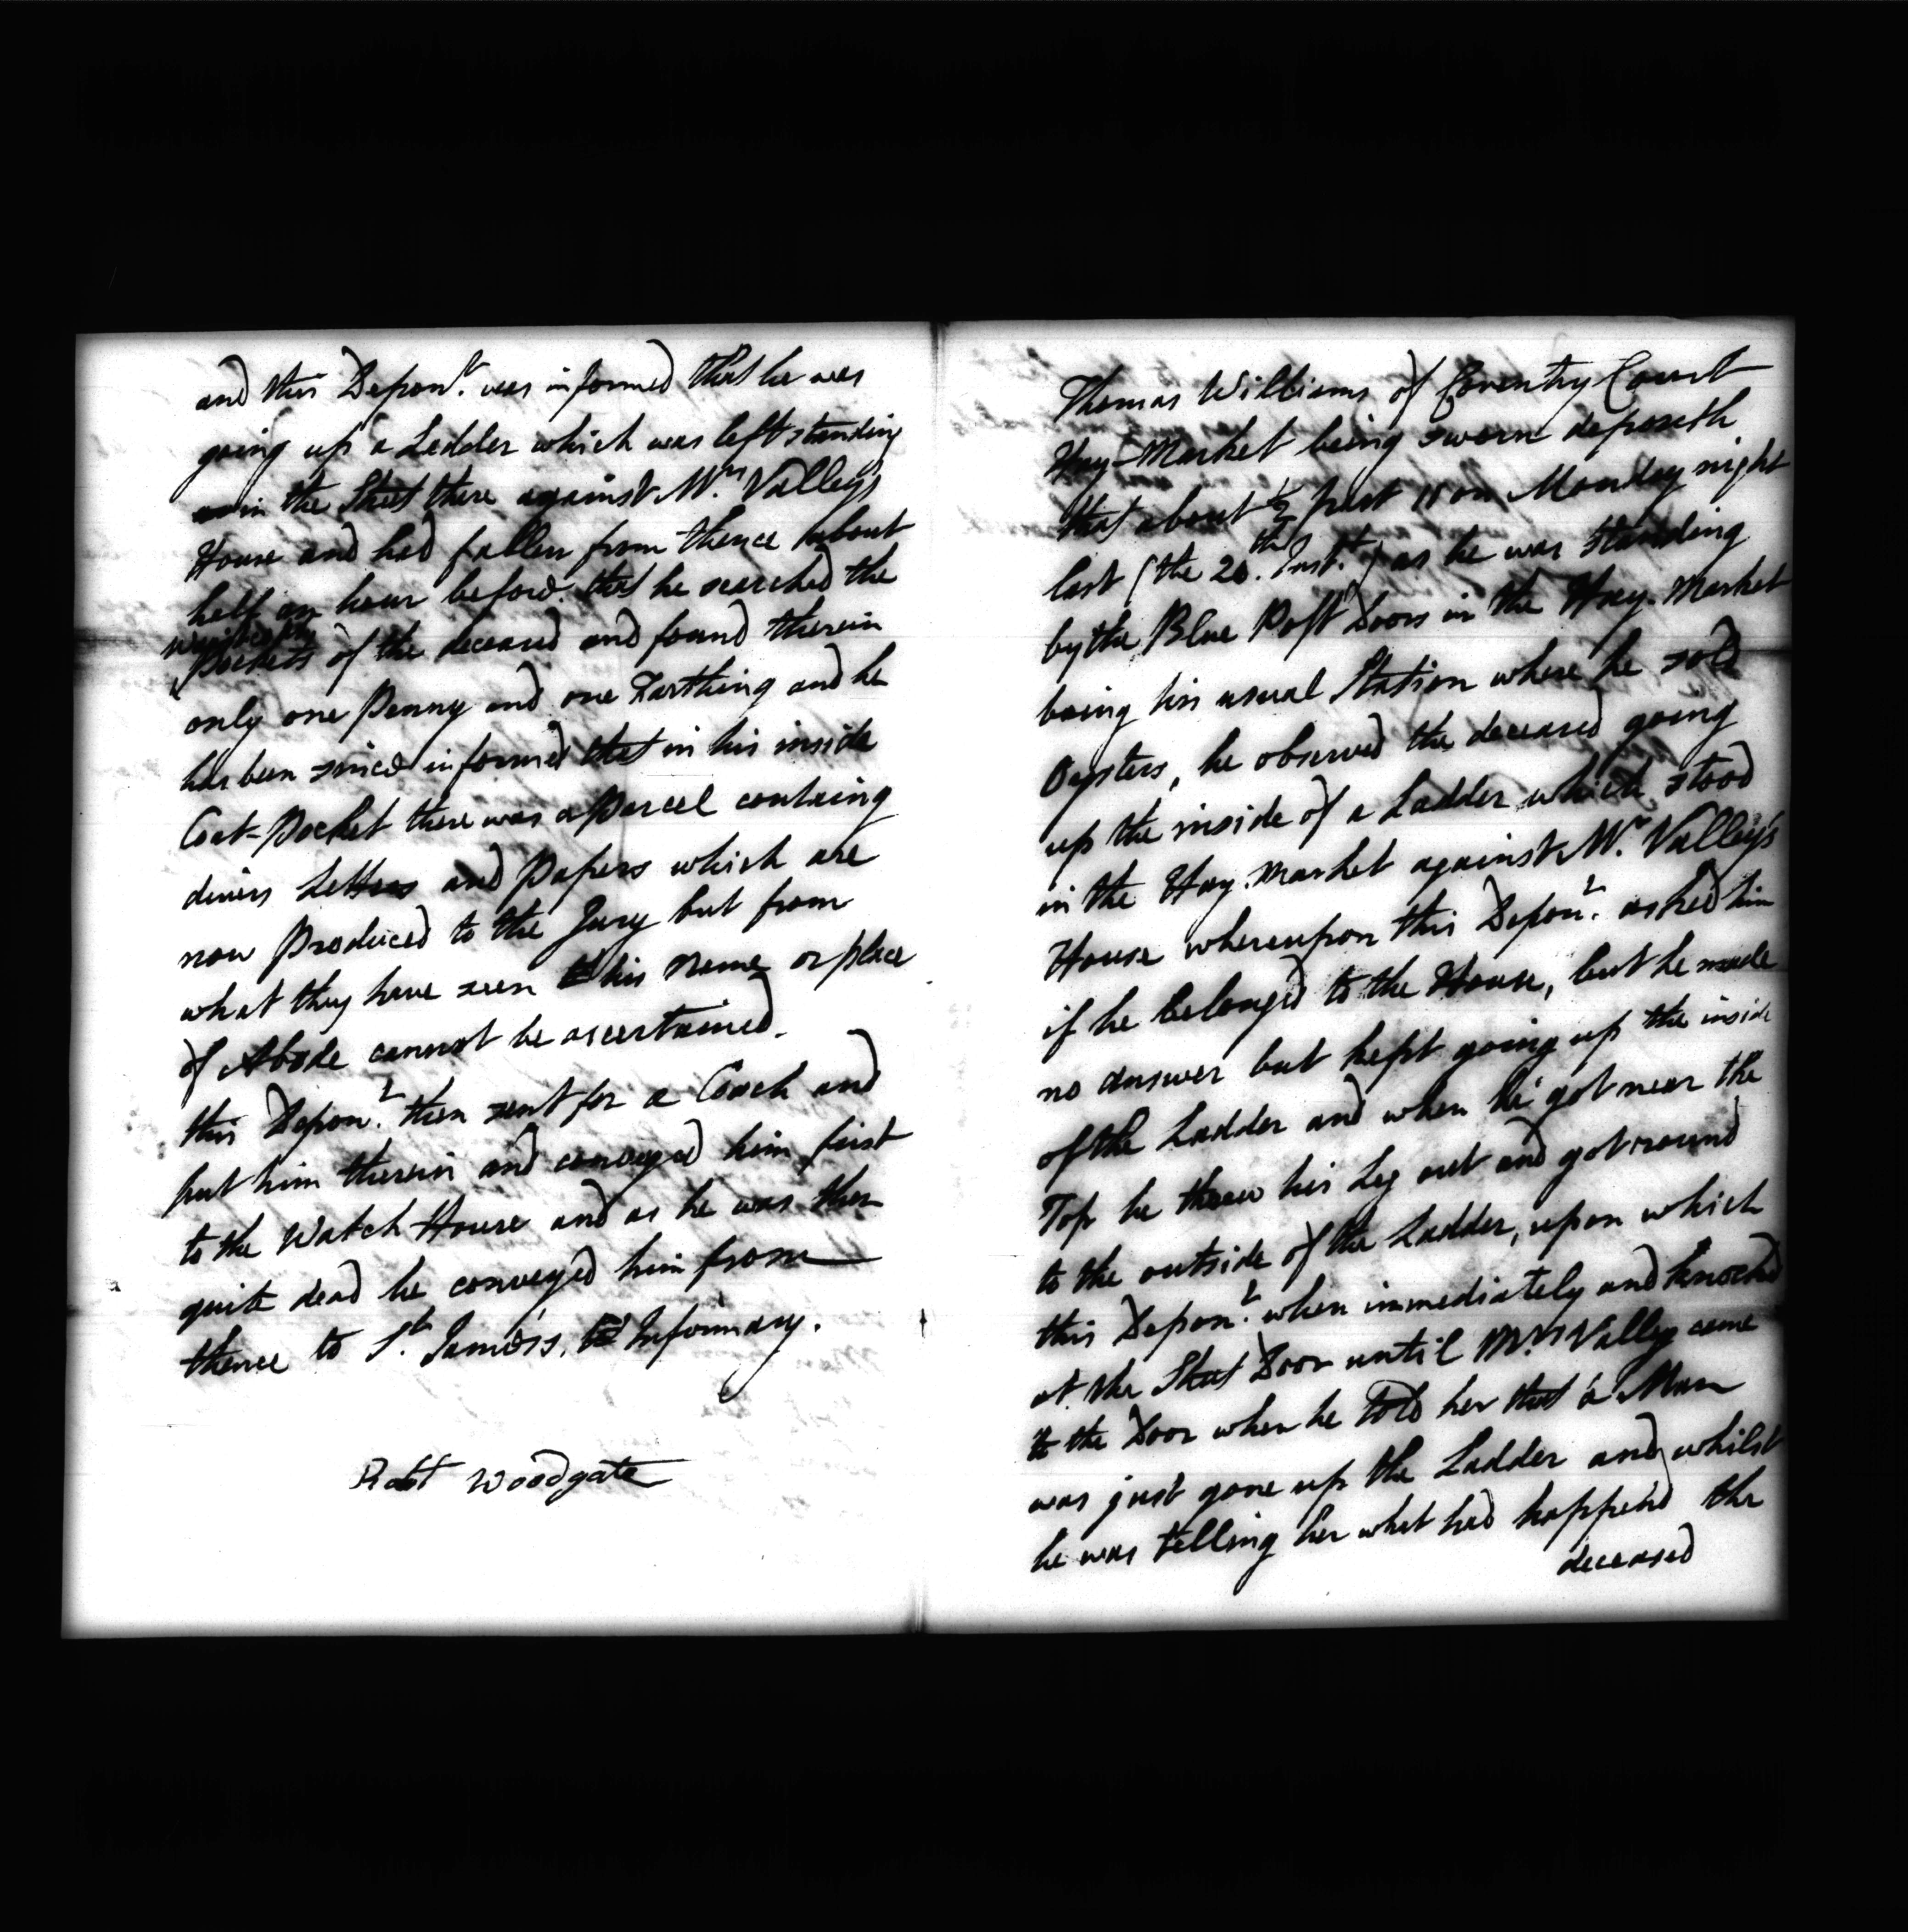 and this Depon.t was informed that he was
going up a Ladder which was left standing
in the Street there against Mrs. Valleys
House and had fallen from thence about
half an hour before. that he searched the
Pockets of the deceased and found therein
only one Penny and one Farthing and he
has been since informed that in his inside
Coat-Pocket there was a Parcel containg
divers Letters and Papers which are
now Produced to the Jury but from
what they have seen his name or place
of Abode cannot be ascertained.
this Depon.t then sent for a Coach and
put him therein and conveyed him first
to the Watch House and as he was then
quite dead he conveyed him from
thence to St. James's, Infirmary.
Robt Woodgate
Thomas Williams of Coventry Court
Hay-Market being sworn deposeth
that about ½ past 11 on Monday night
last (the 20.th Inst.t) as he was standing
by the Blue Post Doors in the Hay-Market
being his usual Station where he sold
Oysters, he observed the deceased going
up the inside of a Ladder which stood
in the Hay-Market against Mr. Valley's
House whereupon this Depon.t asked him
if he belonged to the House, but he made
no answer but kept going up the inside
of the Ladder and when he got near the
Top he threw his Leg out and got round
to the outside of the Ladder, upon which
this Depon.t when immediately and knocked
at the Street Door until Mrs. Valley came
to the Door when he told her that a Man
was just gone up the Ladder and whilst
he was telling her what had happen'd the
deceased